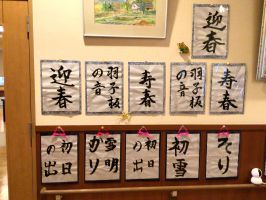 迎春
寿春
羽子板
の音
寿春
羽子板
の音
迎春
初雪
初日
の出
雪明
かり
初日
の出